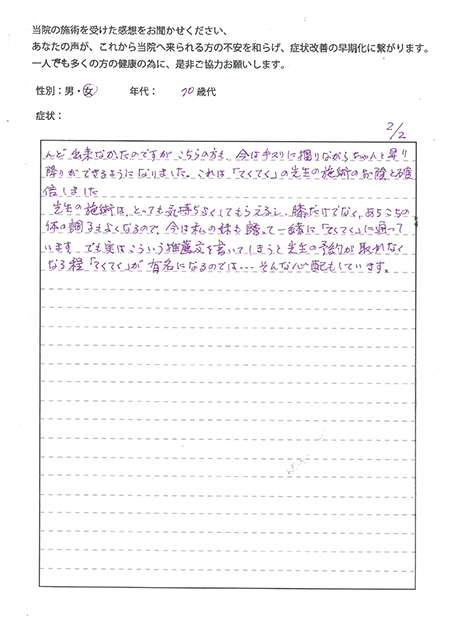 当院の施術を受けた感想をお聞かせください、
あなたの声が、これから当院へ来られる方の不安を和らげ、症状改善の早期化に繋がります。
一人でも多くの方の健康の為に、是非ご協力お願いします。
性別：男・女 年代： 70 歳代
症状：
2/2
んど出来なかったのですが こちらの方も、今は手スリに掴りながらちゃんと昇り
降りができるようになりました。これは「てくてく」の先生の施術のお陰と確
信しました
先生の施術は、とっても気持ちよくしてもらえるし、膝だけでなく、あちこちの
体の調子もよくなるので、今は私の妹も誘って一緒に「てくてく」に通って
います でも実はこういう推薦文を書いてしまうと先生の予約が取れなく
なる程「てくてく」が有名になるのでは… そんな心配もしています。